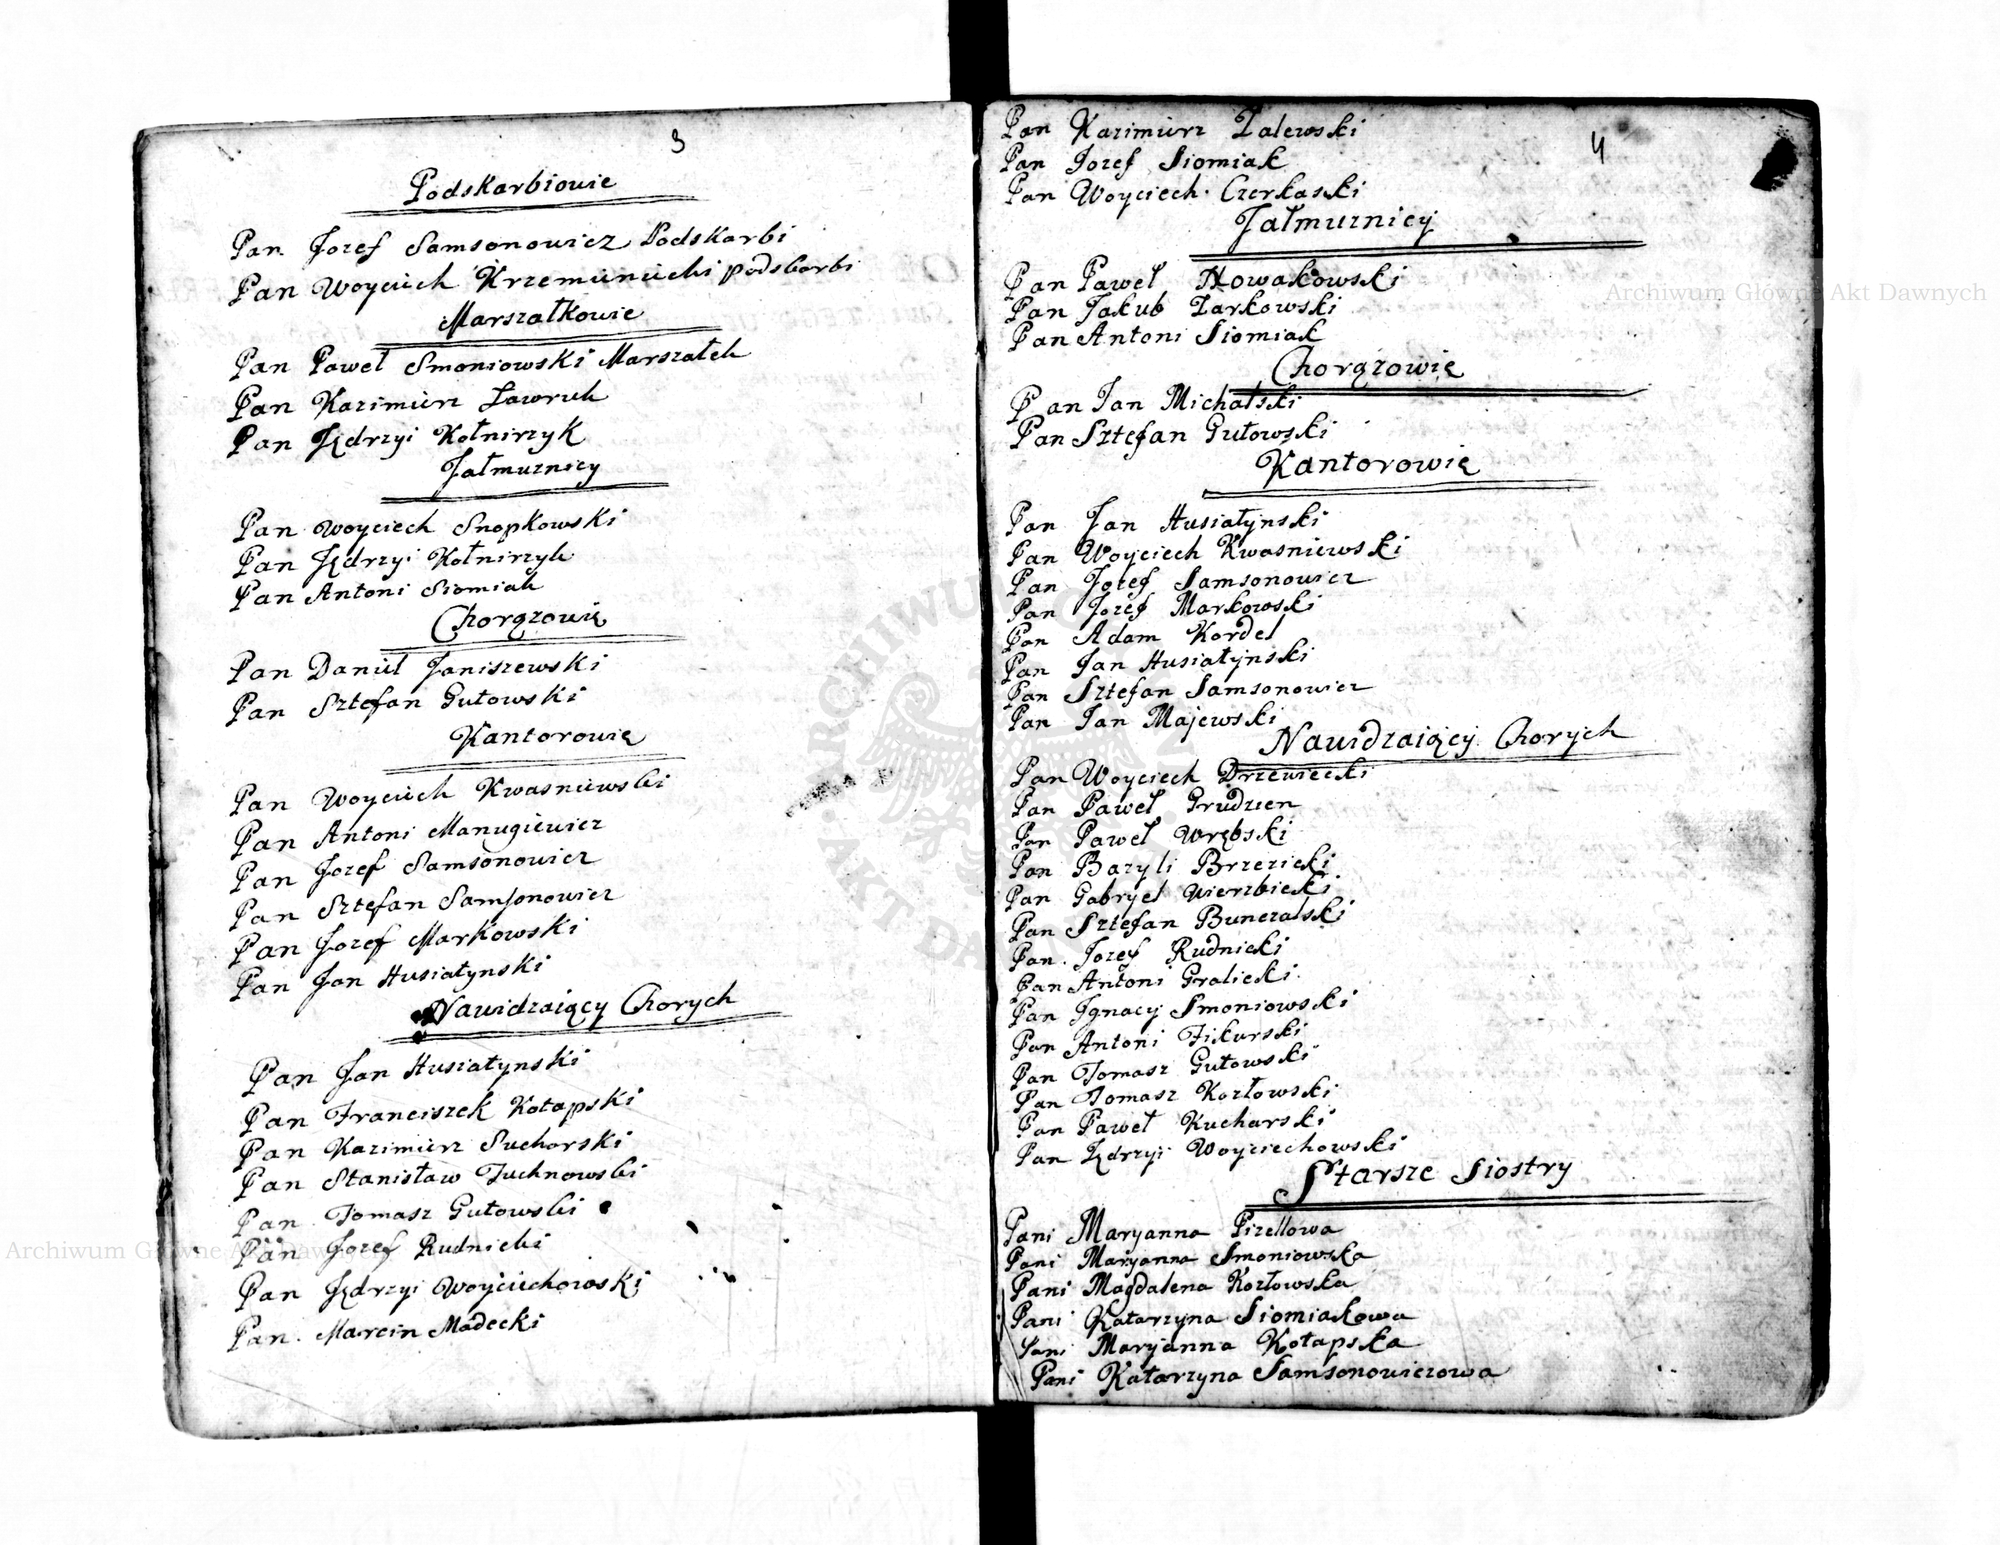 3
Podskarbiowie
Pan Jozef Samsonowicz Podskarbi
Pan Woyciech Krzemieniecki podskarbi
Marszałkowie
Pan Paweł Smoniowski Marszałek
Pan Kazimierz Ławruk
Pan Jędrzyi Kołnirzyk
Jałmuznicy
Pan Woyciech Snopkowski
Pan Jędrzyi Kołnirzyk
Pan Antoni Siomiak
Chorązowie
Pan Daniel Janiszewski
Pan Sztefan Gutowski
Kantorowie
Pan Woyciech Kwasniewski
Pan Antoni Manugiewicz
Pan Jozef Samsonowicz
Pan Sztefan Samsonowicz
Pan Jozef Markowski
Pan Jan Husiatynski
Nawidzaiący Chorych
Pan Jan Husiatynski
Pan Franciszek Kotapski
Pan Kazimierz Sucharski
Pan Stanisław Tuchnowski
Pan Tomasz Gutowski
Pan Jozef Rudnicki
Pan Jędrzyi Woyciechowski
Pan Marcin Madecki
4
Pan Kazimierz Zalewski
Pan Jozef Siomiak
Pan Woyciech Czerkaski
Jałmuznicy
Pan Paweł Nowakowski
Pan Jakub Zarkowski
Pan Antoni Siomiak
Chorązowie
Pan Jan Michalski
Pan Sztefan Gutowski
Kantorowie
Pan Jan Husiatynski
Pan Woyciech Kwasniewski
Pan Jozef Samsonowicz
Pan Jozef Markowski
Pan Adam Kordel
Pan Jan Husiatynski
Pan Sztefan Samsonowicz
Pan Jan Majewski
Nawidzaiący Chorych
Pan Woyciech Drzewiecki
Pan Paweł Grudzien
Pan Paweł Wrębski
Pan Bazyli Brzezicki
Pan Gabryel Wierzbicki
Pan Sztefan Bunezalski
Pan Jozef Rudnicki
Pan Antoni Gralicki
Pan Jgnacy Smoniowski
Pan Antoni Fikurski
Pan Tomasz Gutowski
Pan Tomasz Kozłowski
Pan Paweł Kucharski
Pan Jędrzyi Woyciechowski
Starsze Siostry
Pani Maryanna Pizellowa
Pani Maryanna Smoniowska
Pani Magdalena Kozłowska
Pani Katarzyna Siomiakowa
Pani Maryanna Kotapska
Pani Katarzyna Samsonowiczowa
Archiwum Główne Akt Dawnych
Archiwum Główne Akt Dawnych